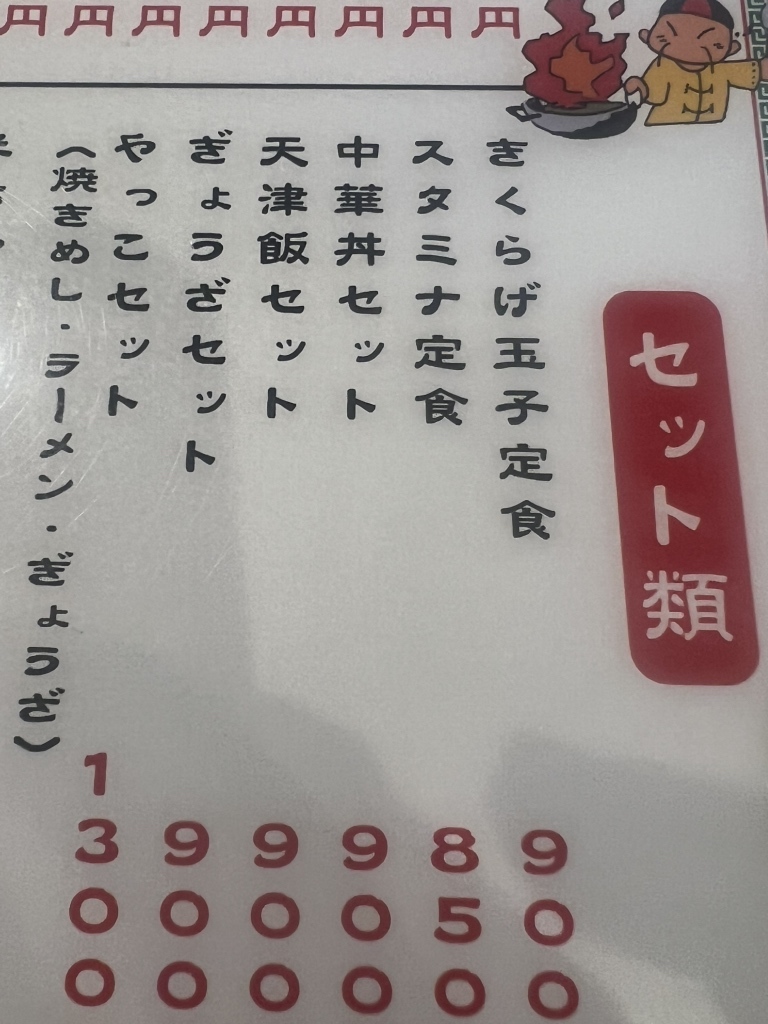 円円円円円円円円
セット類
きくらげ玉子定食 900
スタミナ定食 850
中華丼セット 900
天津飯セット 900
ぎょうざセット 900
やっこセット 1300
（焼きめし・ラーメン・ぎょうざ）